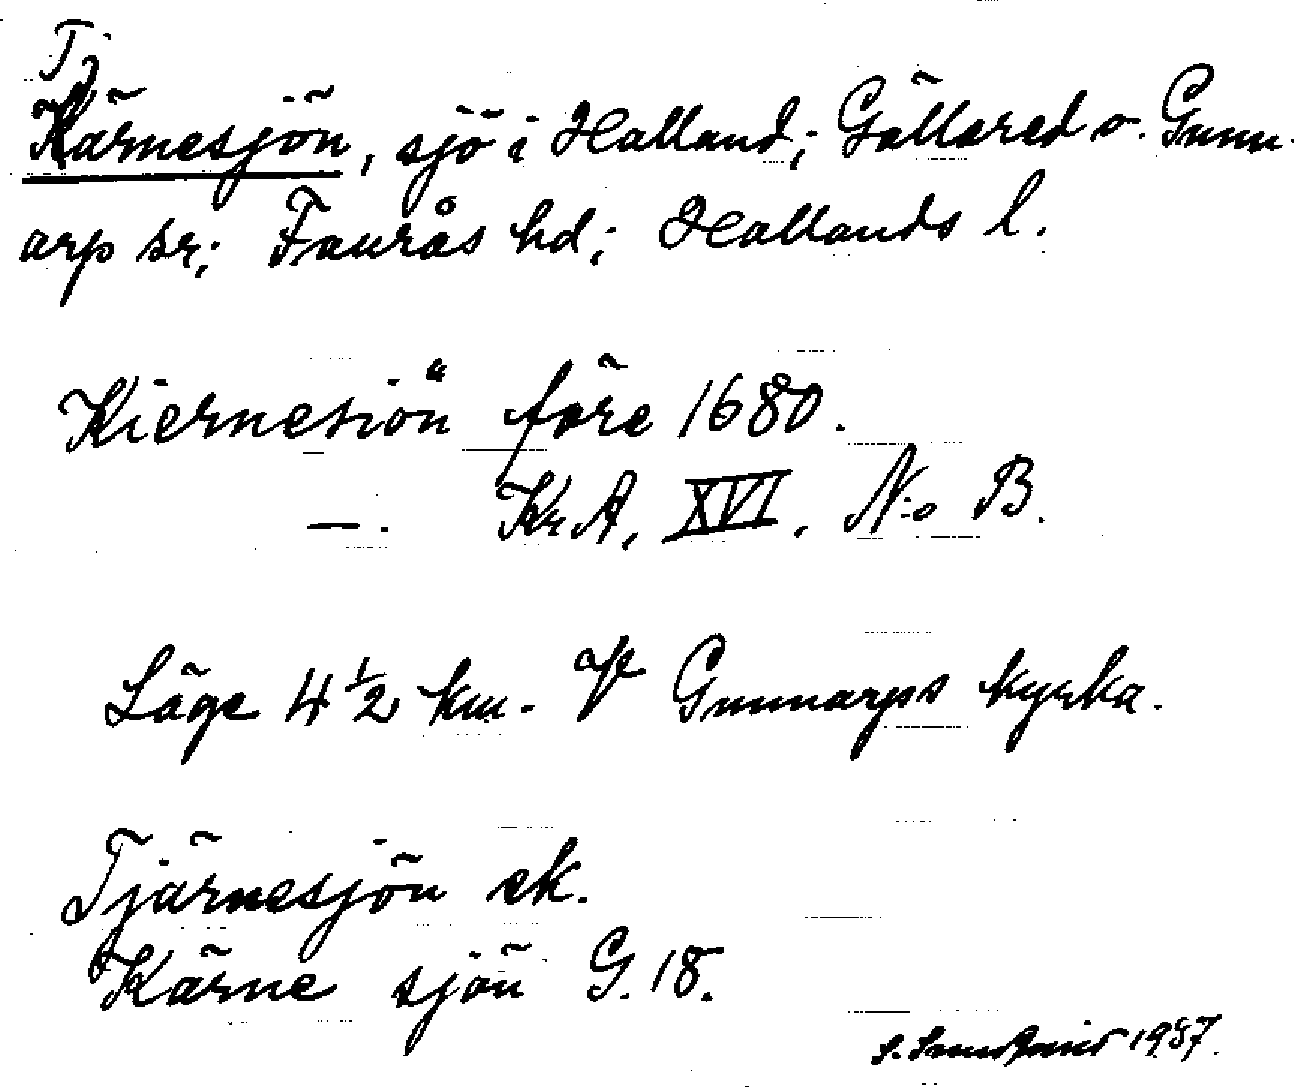 Tj
Kärnesjön, sjö i Halland; Gällared o. Gunn-
arp sr; Faurås hd; Hallands l.
Kiernesiön före 1680.
—. KrA, XVI, No B.
Läge 4 1/2 km. Gunnarps kyrka.
Tjärnesjön ek.
Kärne sjön G. 18.
S. 1937.